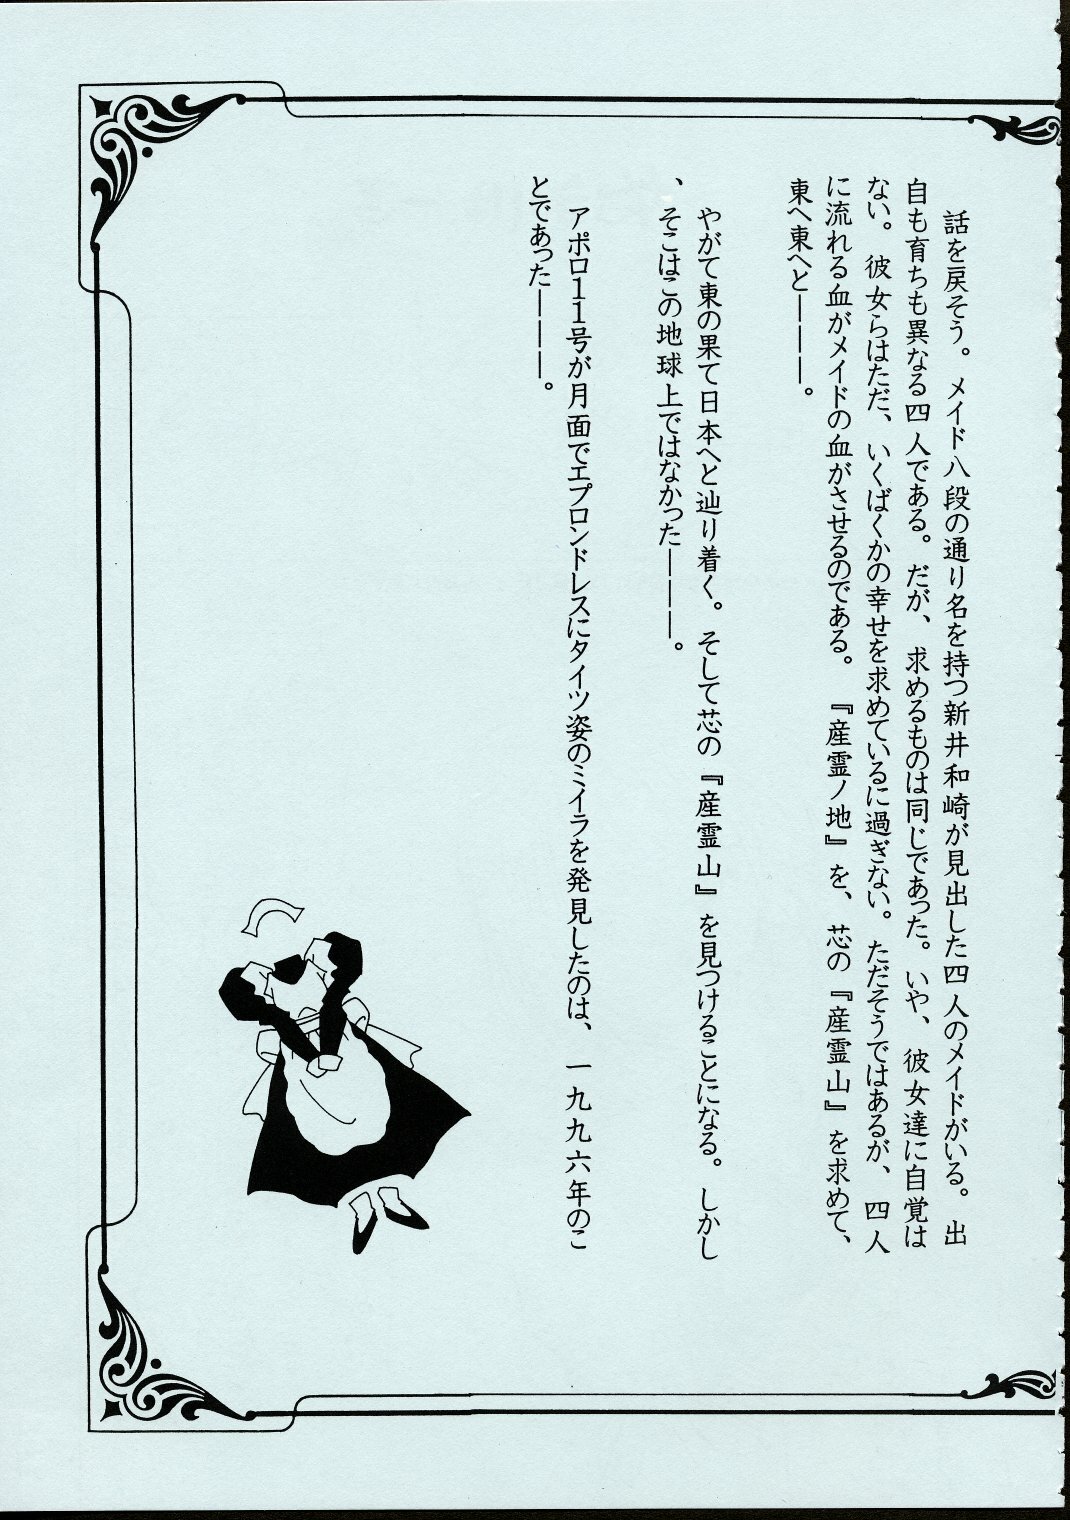 話を戻そう。メイド八段の通り名を持つ新井和崎が見出した四人のメイドがいる。出
自も育ちも異なる四人である。だが、求めるものは同じであった。いや、彼女達に自覚は
ない。彼女らはただ、いくばくかの幸せを求めているに過ぎない。ただそうではあるが、四人
に流れる血がメイドの血がさせるのである。『産霊ノ地』を、芯の『産霊山』を求めて、
東へ東へと―――。
やがて東の果て日本へと辿り着く。そして芯の『産霊山』を見つけることになる。しかし
、そこはこの地球上ではなかった―――。
アポロ11号が月面でエプロンドレスにタイツ姿のミイラを発見したのは、一九九六年のこ
とであった―――。